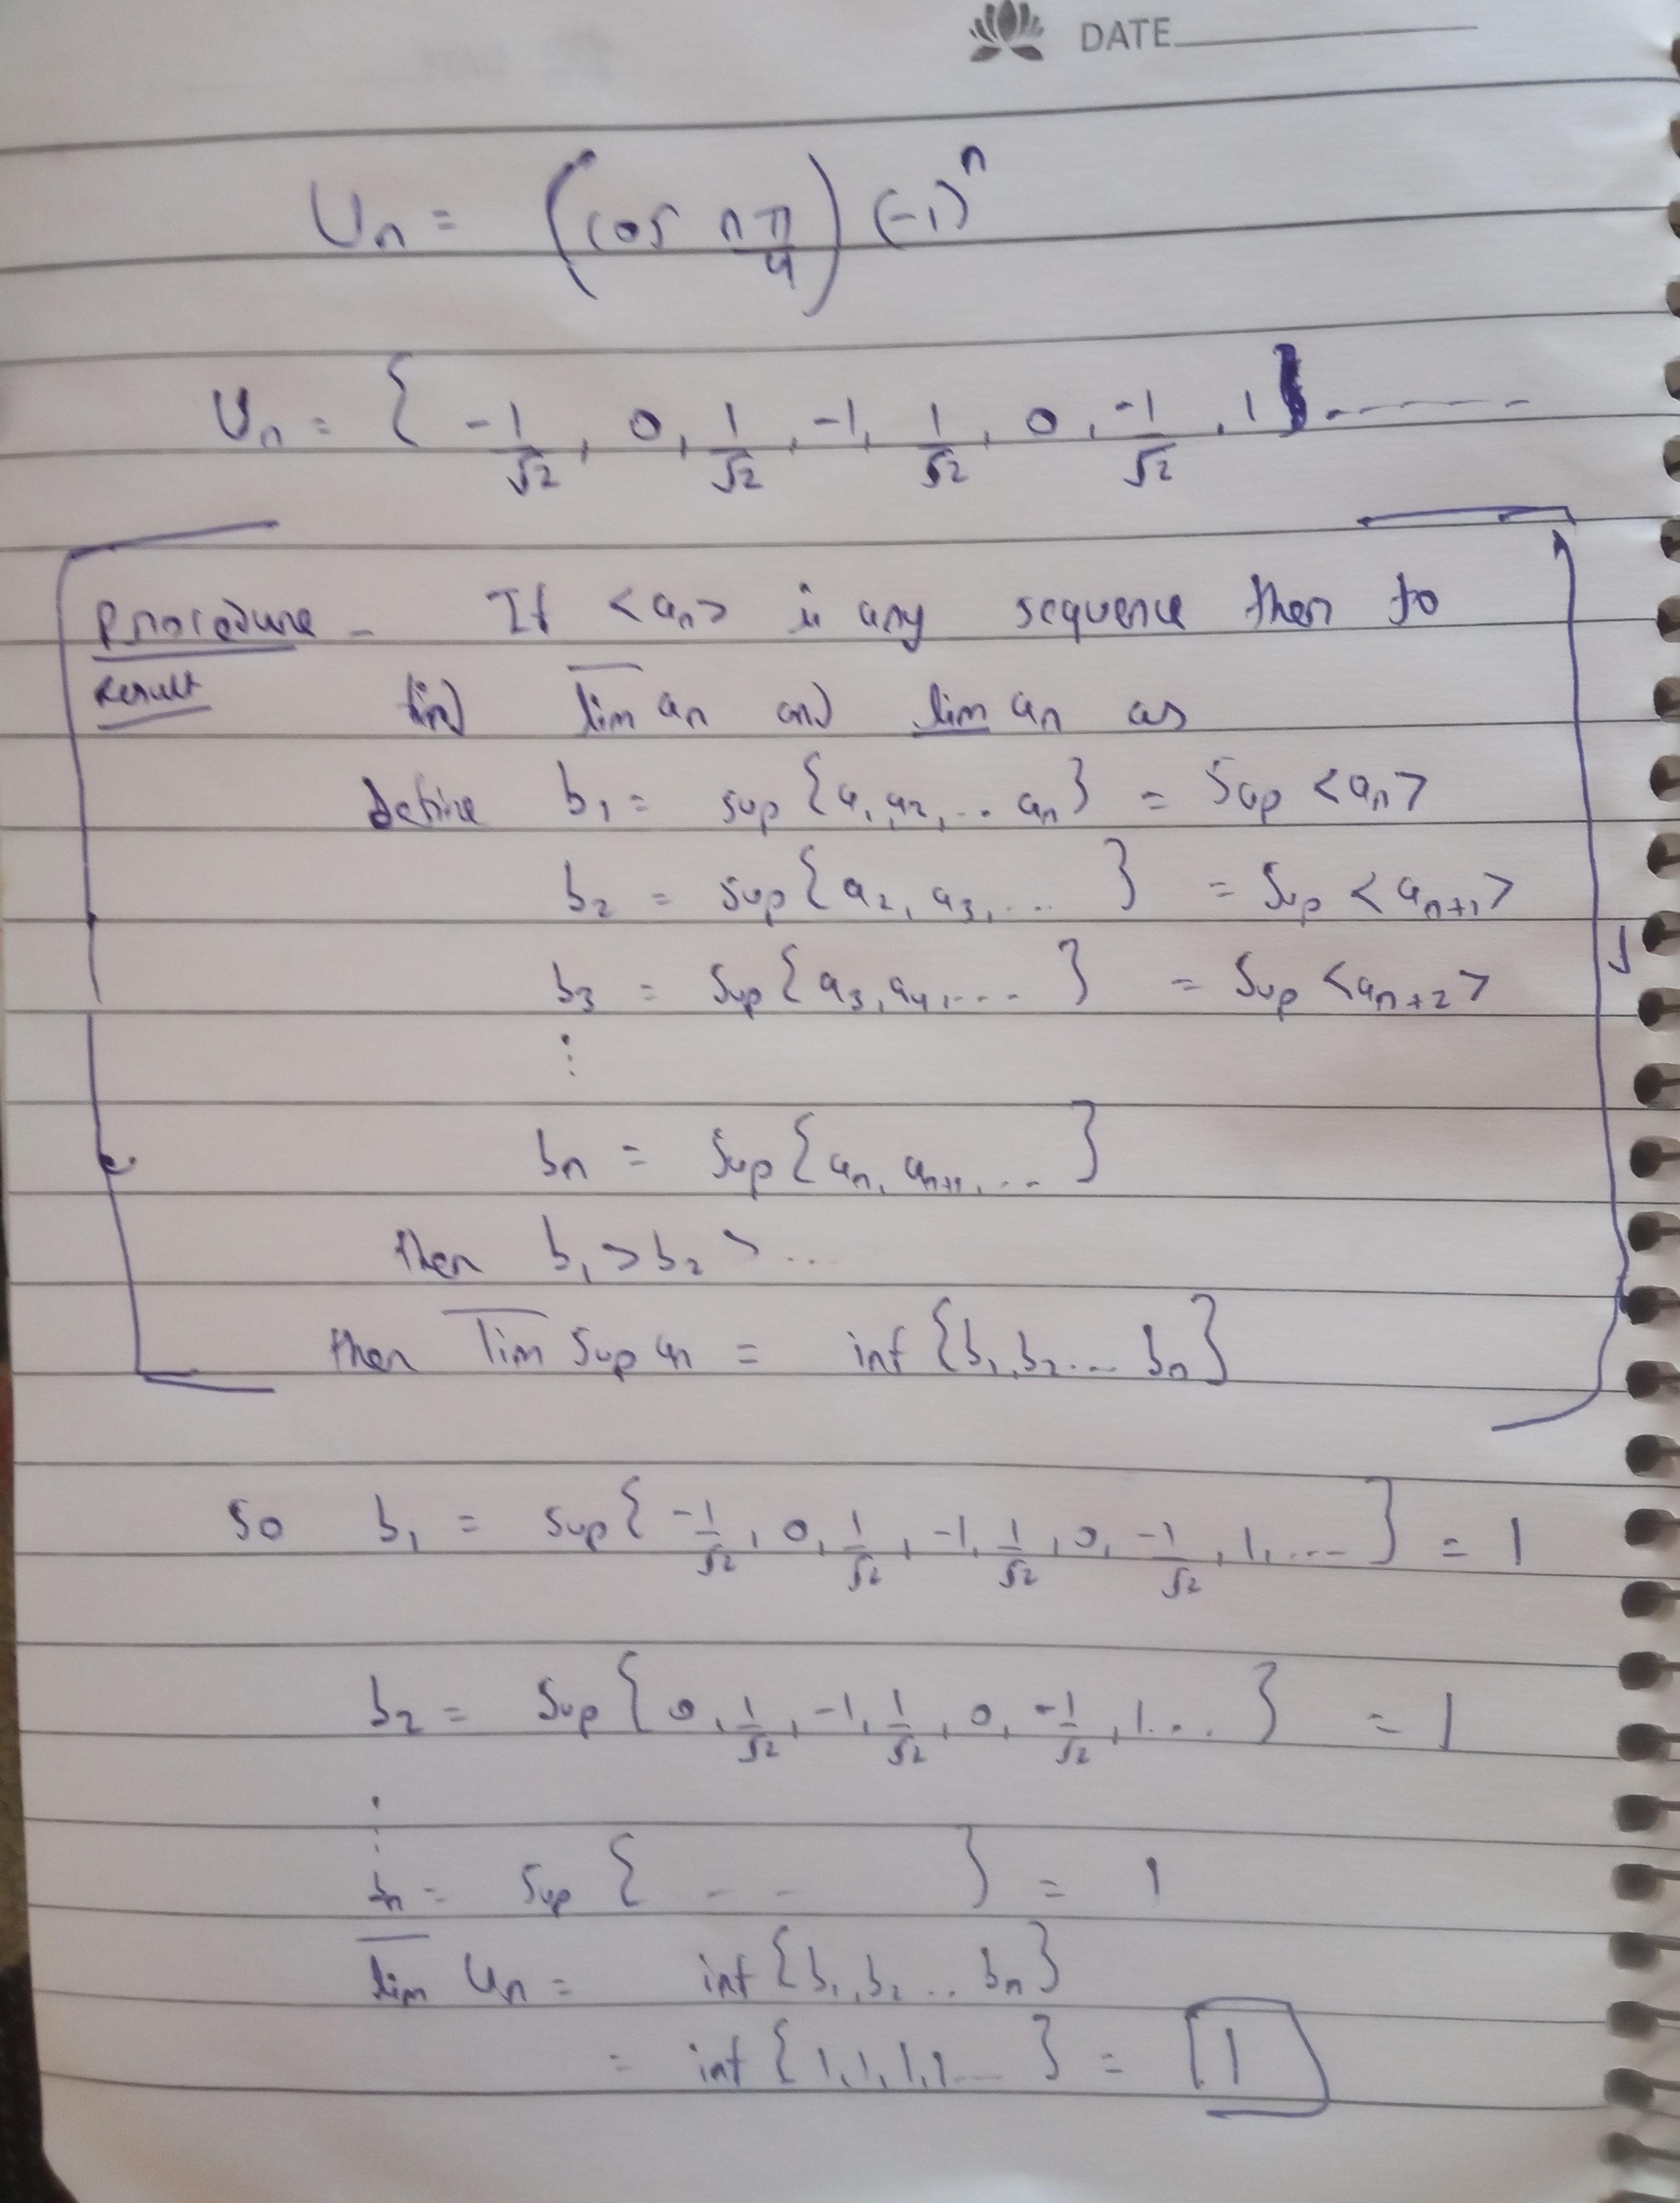 DATE
Un = (cos nπ/4) (-1)^n
Un = { -1/√2, 0, 1/√2, -1, 1/√2, 0, -1/√2, 1} -------
Procedure - If <an> is any sequence then to
Result find l̅i̅m̅ an and l̲i̲m̲ an as
define b₁ = sup {a₁, a₂, ... an} = Sup <an>
b₂ = sup {a₂, a₃, ... } = Sup <an+1>
b₃ = Sup {a₃, a₄, .... } = Sup <an+2>
⋮
bn = Sup {an, an+1, ... }
then b₁ > b₂ > ...
then l̅i̅m̅ Sup an = inf {b₁, b₂ ... bn}
So b₁ = Sup { -1/√2, 0, 1/√2, -1, 1/√2, 0, -1/√2, 1, .... } = 1
b₂ = Sup { 0, 1/√2, -1, 1/√2, 0, -1/√2, 1 ... } = 1
⋮
bn = Sup { - - } = 1
l̅i̅m̅ Un = inf {b₁, b₂ ... bn}
= inf {1, 1, 1, 1, ... } = 1